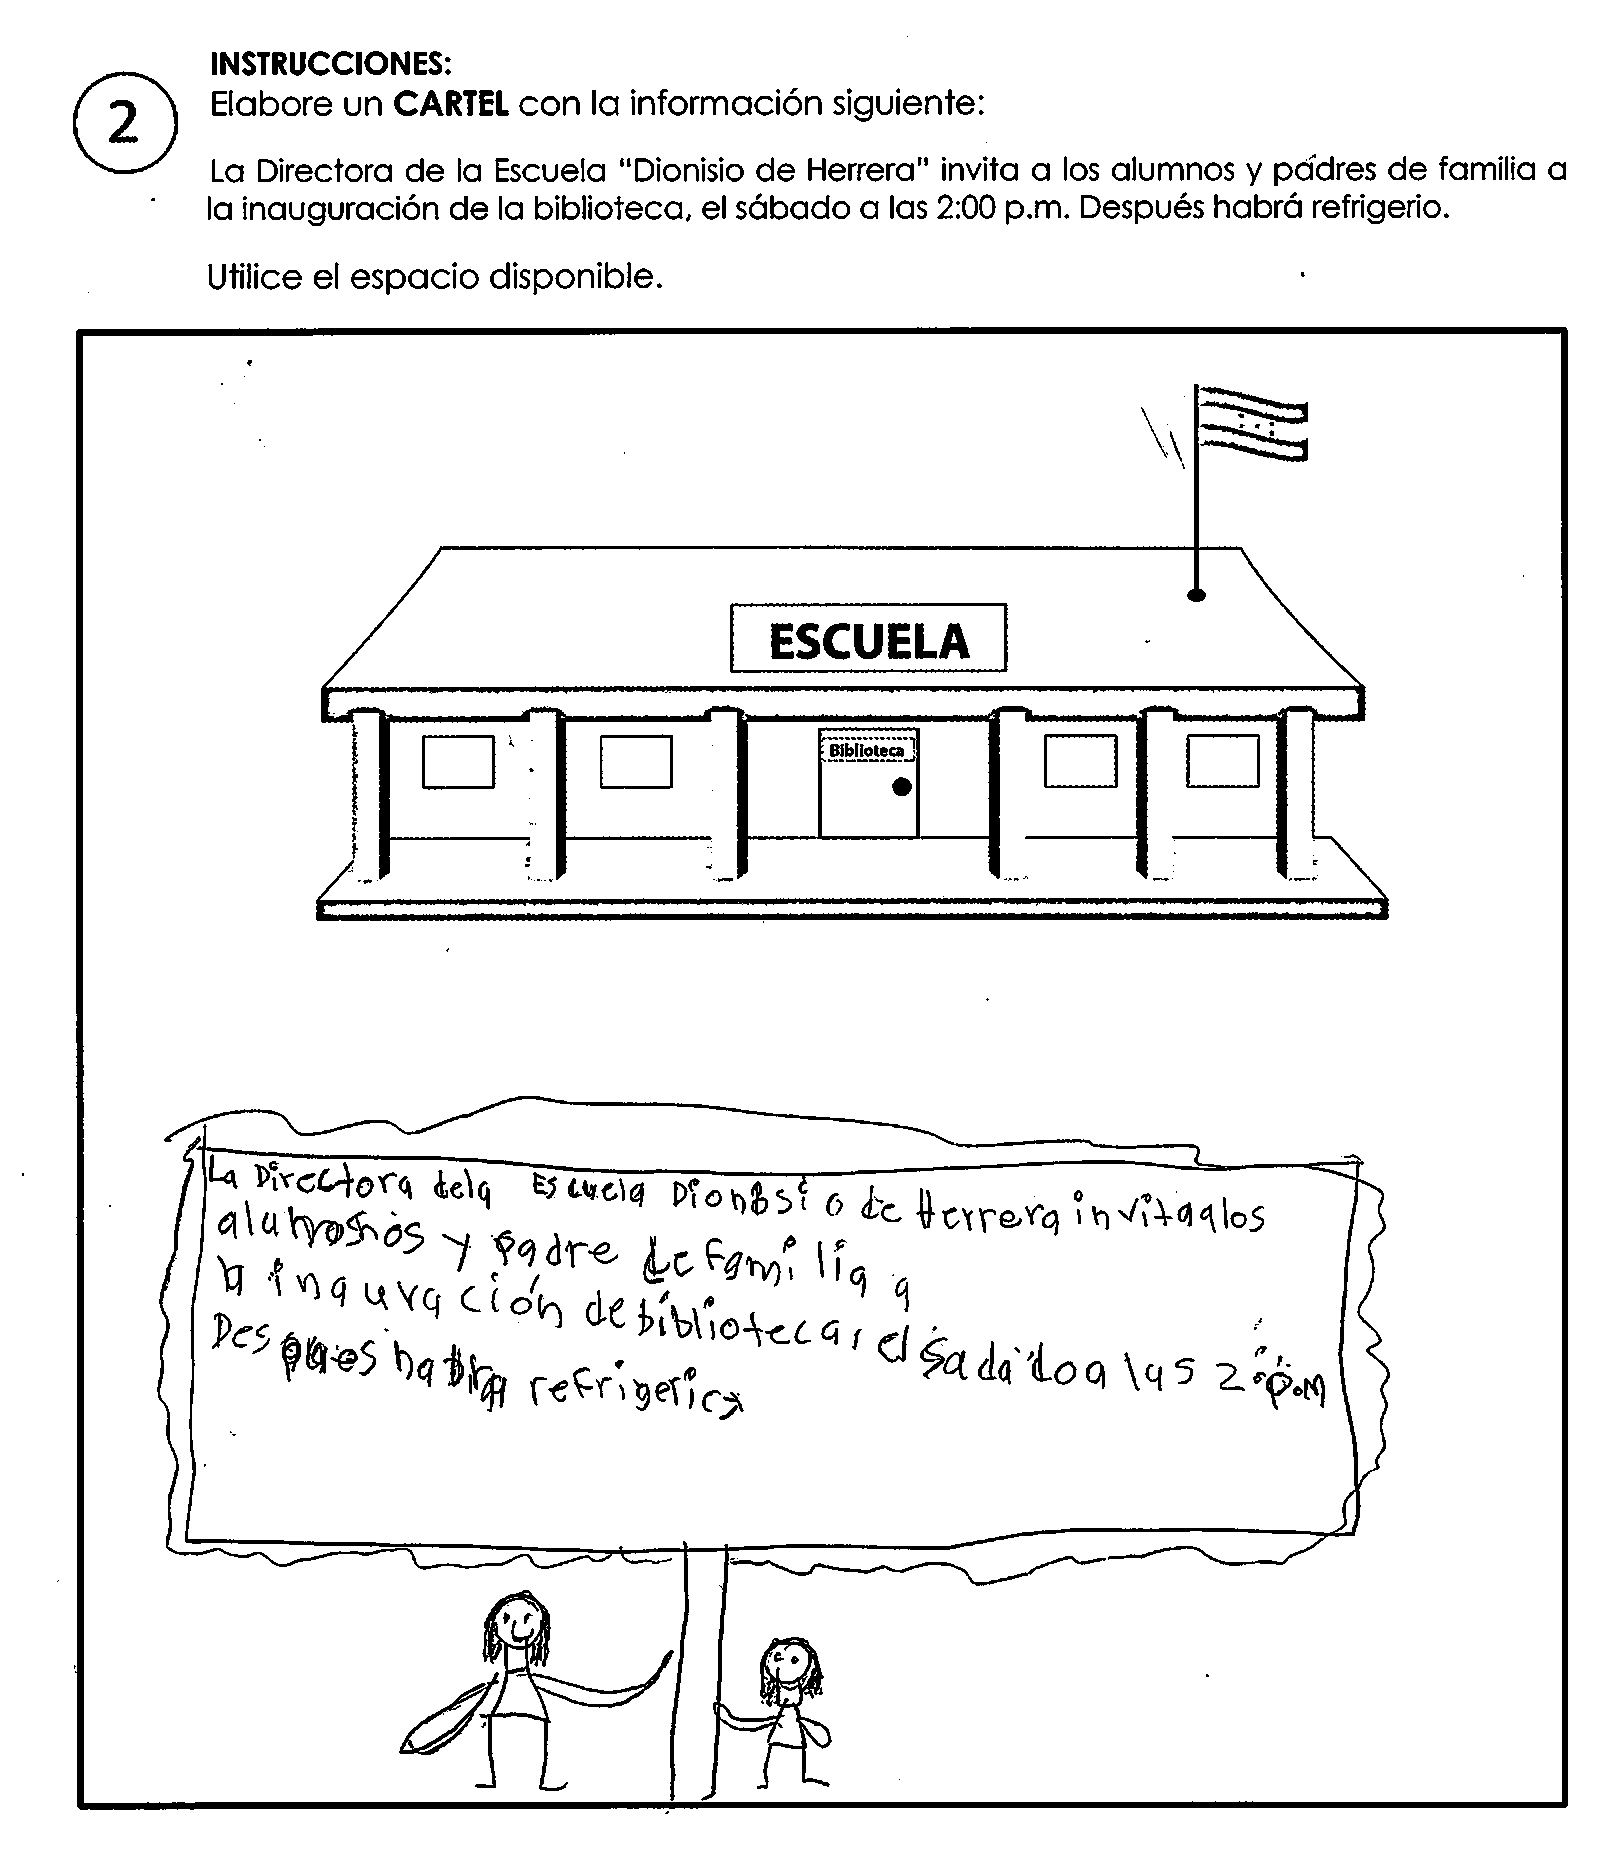 INSTRUCCIONES:
2
Elabore un CARTEL con la información siguiente:
La Directora de la Escuela "Dionisio de Herrera" invita a los alumnos y padres de familia a
la inauguración de la biblioteca, el sábado a las 2:00 p.m. Después habrá refrigerio.
Utilice el espacio disponible.
ESCUELA
Biblioteca
La Directora dela Escuela Dionisio de Herrera invitaalos
y padre de familia a
inauración de biblioteca, el sadado a las 2:
Despues habra refrigerio